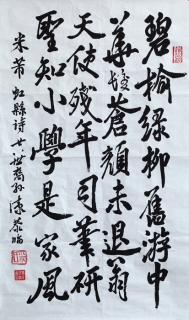 碧榆綠柳舊游中
華髮蒼顏未退翁
天使殘年司筆研
聖知小學是家風
米芾虹縣詩廿一世裔孫陳